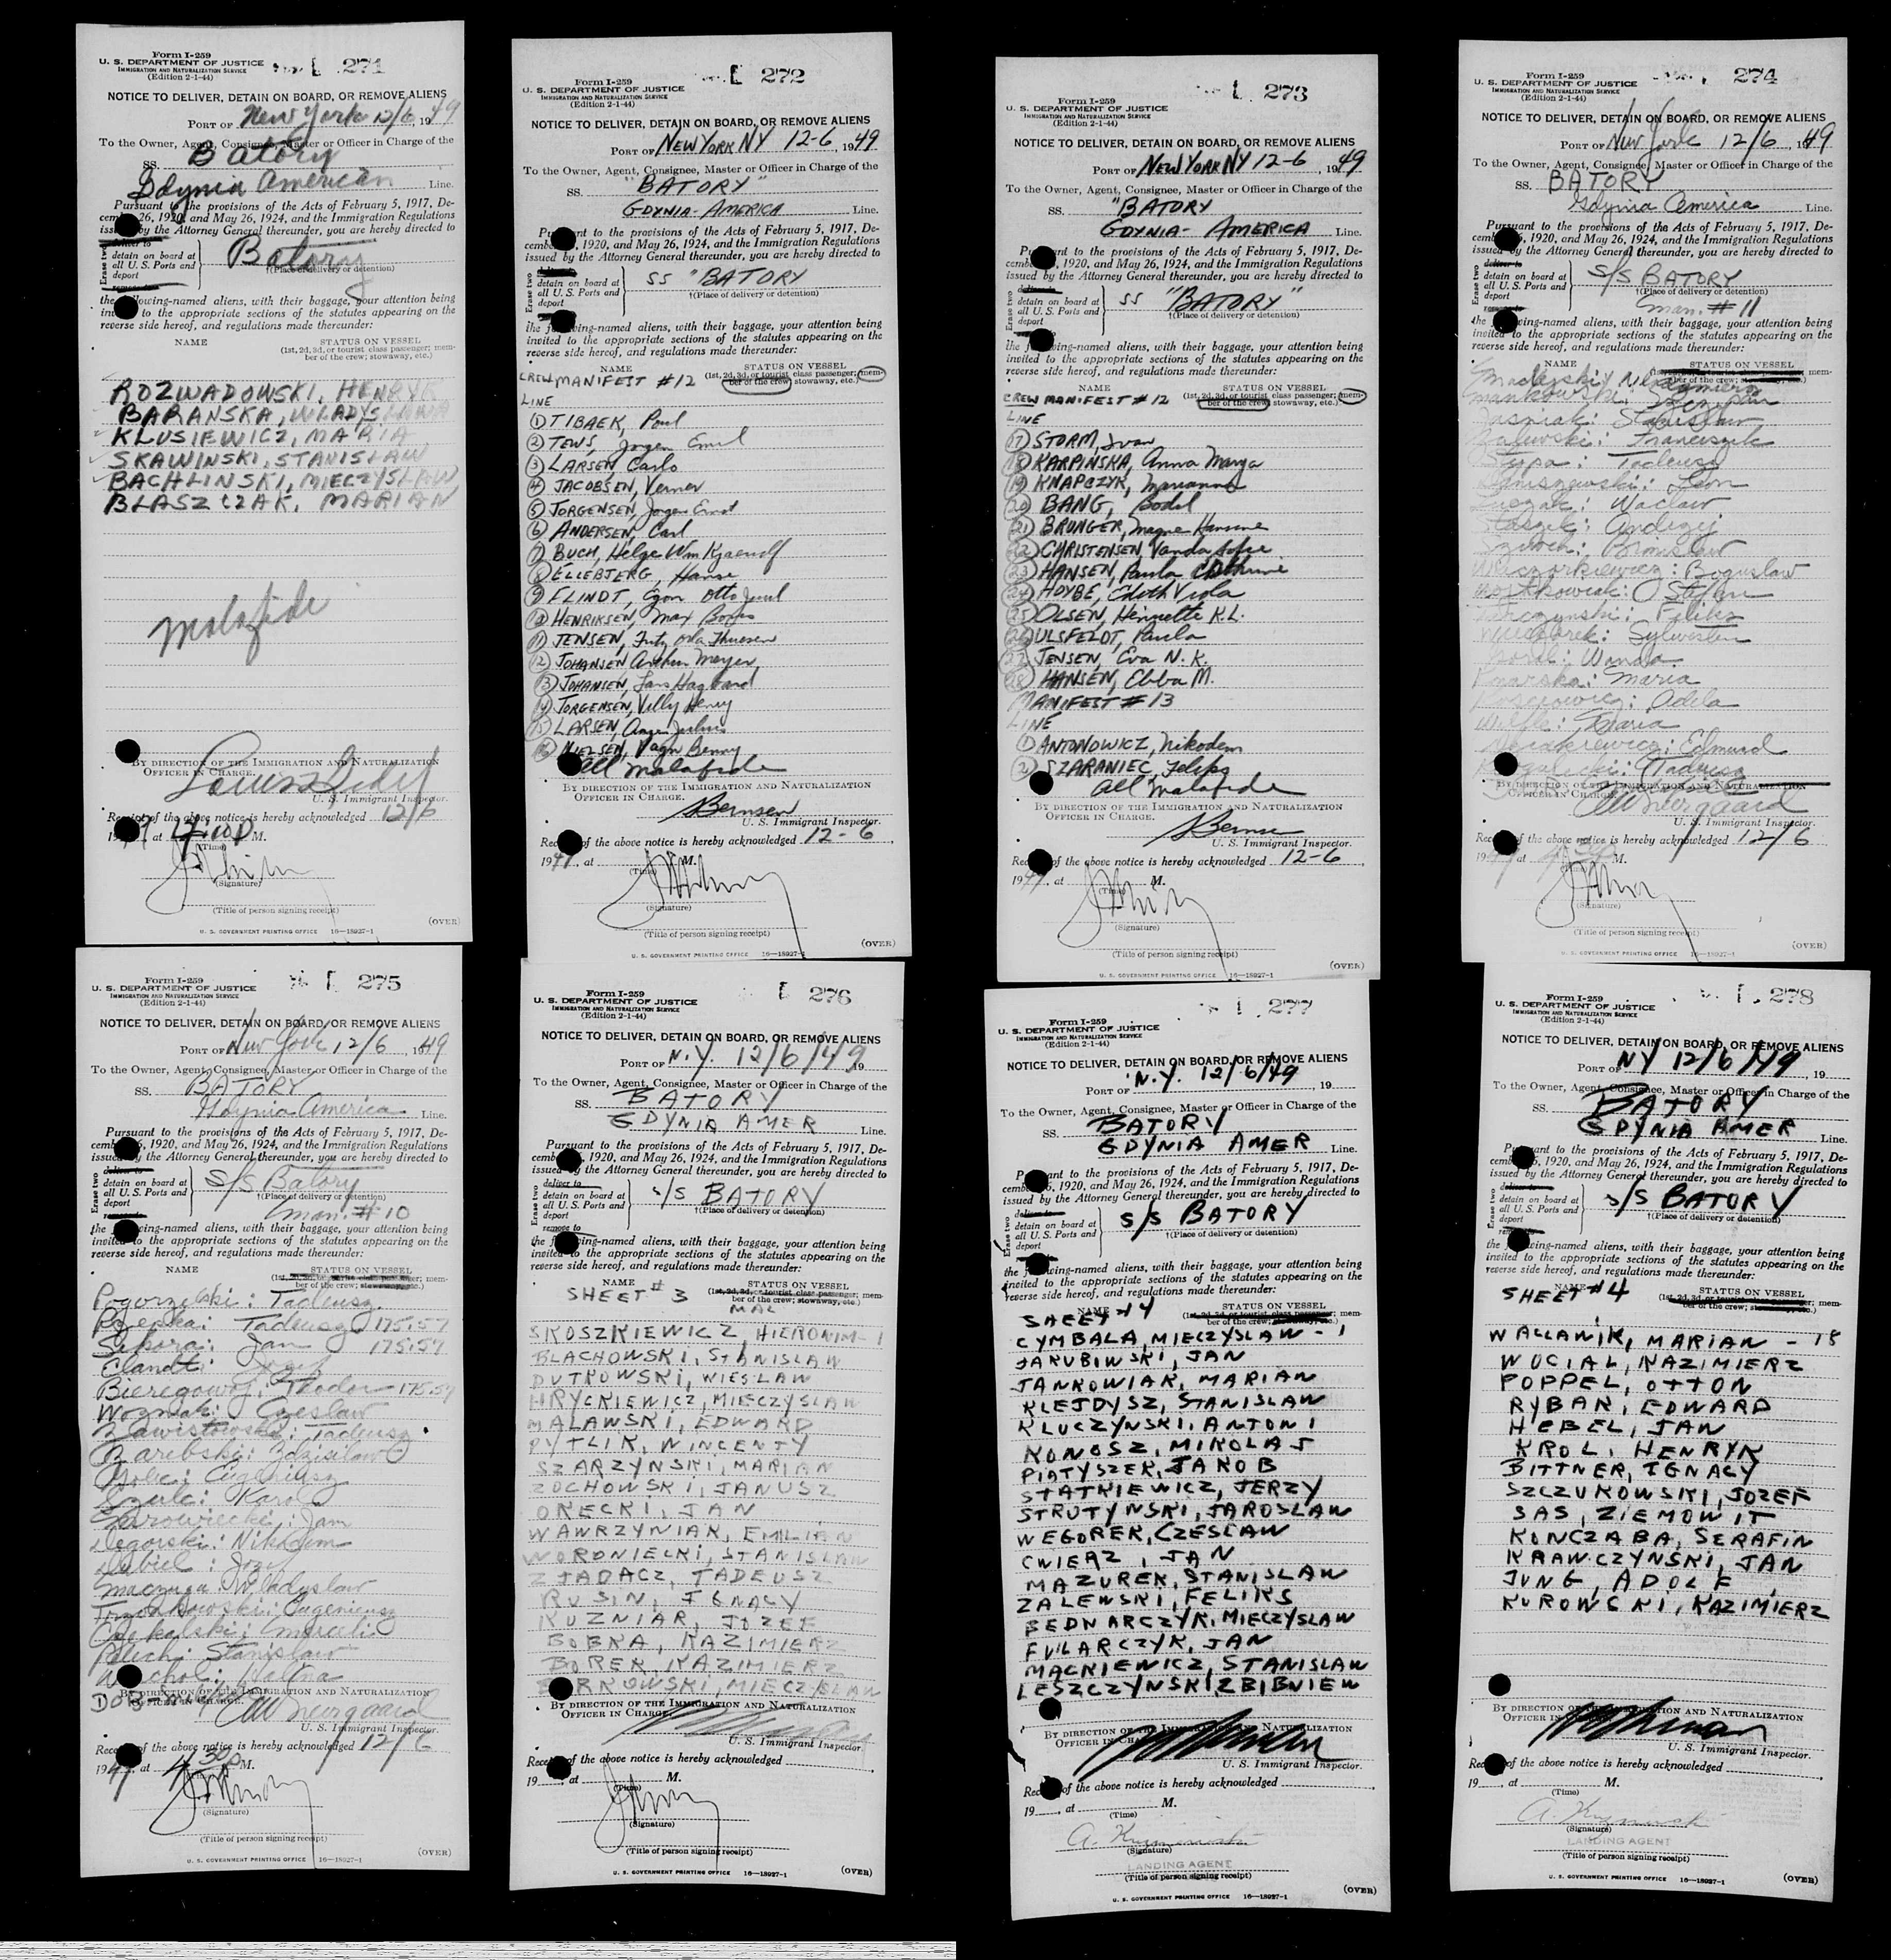 Form I-259
U. S. DEPARTMENT OF JUSTICE
IMMIGRATION AND NATURALIZATION SERVICE
(Edition 2-1-44)
271
NOTICE TO DELIVER, DETAIN ON BOARD, OR REMOVE ALIENS
PORT OF New York 12/6, 1949
To the Owner, Agent, Consignee, Master or Officer in Charge of the
SS. Batory
Gdynia American Line.
Pursuant to the provisions of the Acts of February 5, 1917, De-
cember 26, 1920, and May 26, 1924, and the Immigration Regulations
issued by the Attorney General thereunder, you are hereby directed to
Erase two
deliver to
detain on board at
all U. S. Ports and
deport
Batory
†(Place of delivery or detention)
the following-named aliens, with their baggage, your attention being
invited to the appropriate sections of the statutes appearing on the
reverse side hereof, and regulations made thereunder:
NAME STATUS ON VESSEL
(1st, 2d, 3d, or tourist class passenger; mem-
ber of the crew; stowaway, etc.)
ROZWADOWSKI, HENRYK
BARANSKA, WLADYSLAWA
KLUSIEWICZ, MARIA
SKAWINSKI, STANISLAW
BACHLINSKI, MIECZYSLAW
BLASZCZAK, MARIAN
Malafide
BY DIRECTION OF THE IMMIGRATION AND NATURALIZATION
OFFICER IN CHARGE.
U. S. Immigrant Inspector.
Receipt of the above notice is hereby acknowledged 12/6
1949 at 12:10 P M.
(Time)
(Signature)
(Title of person signing receipt)
(OVER)
U. S. GOVERNMENT PRINTING OFFICE 16—18927-1
Form I-259
U. S. DEPARTMENT OF JUSTICE
IMMIGRATION AND NATURALIZATION SERVICE
(Edition 2-1-44)
272
NOTICE TO DELIVER, DETAIN ON BOARD, OR REMOVE ALIENS
PORT OF NEW YORK NY 12-6, 1949
To the Owner, Agent, Consignee, Master or Officer in Charge of the
SS. "BATORY"
GDYNIA-AMERICA Line.
Pursuant to the provisions of the Acts of February 5, 1917, De-
cember 26, 1920, and May 26, 1924, and the Immigration Regulations
issued by the Attorney General thereunder, you are hereby directed to
Erase two
deliver to
detain on board at
all U. S. Ports and
deport
SS "BATORY
†(Place of delivery or detention)
the following-named aliens, with their baggage, your attention being
invited to the appropriate sections of the statutes appearing on the
reverse side hereof, and regulations made thereunder:
NAME STATUS ON VESSEL
CREW MANIFEST #12 (1st, 2d, 3d, or tourist class passenger; mem-
ber of the crew; stowaway, etc.)
LINE
1 TIBAEK, Poul
2 TEWS, Jorgen Emil
3 LARSEN, Carlo
4 JACOBSEN, Verner
5 JORGENSEN, Jorgen Ernst
6 ANDERSEN, Carl
7 BUCH, Helge Wm
8 ELLEBJERG, Hanse
9 FLINDT, Egon Otto Juul
10 HENRIKSEN, Max
11 JENSEN, Fritz Orla Thuesen
12 JOHANSEN Arthur Meyer
13 JOHANSEN, Lars
14 JORGENSEN, Villy Henry
15 LARSEN, Aage Julius
16 NIELSEN, Vagn Benny
All malafide
BY DIRECTION OF THE IMMIGRATION AND NATURALIZATION
OFFICER IN CHARGE.
U. S. Immigrant Inspector.
Receipt of the above notice is hereby acknowledged 12-6
1949, at M.
(Time)
(Signature)
(Title of person signing receipt)
(OVER)
U. S. GOVERNMENT PRINTING OFFICE 16—18927-1
Form I-259
U. S. DEPARTMENT OF JUSTICE
IMMIGRATION AND NATURALIZATION SERVICE
(Edition 2-1-44)
273
NOTICE TO DELIVER, DETAIN ON BOARD, OR REMOVE ALIENS
PORT OF NEW YORK NY 12-6, 1949
To the Owner, Agent, Consignee, Master or Officer in Charge of the
SS. "BATORY
GDYNIA- AMERICA Line.
Pursuant to the provisions of the Acts of February 5, 1917, De-
cember 26, 1920, and May 26, 1924, and the Immigration Regulations
issued by the Attorney General thereunder, you are hereby directed to
Erase two
detain on board at
all U. S. Ports and
deport
SS "BATORY"
†(Place of delivery or detention)
the following-named aliens, with their baggage, your attention being
invited to the appropriate sections of the statutes appearing on the
reverse side hereof, and regulations made thereunder:
NAME STATUS ON VESSEL
CREW MANIFEST #12 (1st, 2d, 3d, or tourist class passenger; mem-
ber of the crew; stowaway, etc.)
LINE
17 STORM, Ivar
18 KARPINSKA, Anna Marya
19 KNAPCZYK, Marianna
20 BANG, Bodil
21 BRUNGER, Magne Hansine
22 CHRISTENSEN, Vanda Sofie
23 HANSEN, Paula
24 HOYBE, Edith Viola
25 OLSEN, Henriette K.L.
26 ULSFELDT, Paula
27 JENSEN, Eva N. K.
28 HANSEN, Ebba M.
MANIFEST #13
LINE
1 ANTONOWICZ, Nikodem
2 SZARANIEC, Feliks
All malafide
BY DIRECTION OF THE IMMIGRATION AND NATURALIZATION
OFFICER IN CHARGE.
U. S. Immigrant Inspector.
Receipt of the above notice is hereby acknowledged 12-6
1949, at M.
(Time)
(Signature)
(Title of person signing receipt)
(OVER)
U. S. GOVERNMENT PRINTING OFFICE 16—18927-1
Form I-259
U. S. DEPARTMENT OF JUSTICE
IMMIGRATION AND NATURALIZATION SERVICE
(Edition 2-1-44)
274
NOTICE TO DELIVER, DETAIN ON BOARD, OR REMOVE ALIENS
PORT OF New York 12/6, 1949
To the Owner, Agent, Consignee, Master or Officer in Charge of the
SS. BATORY
Gdynia America Line.
Pursuant to the provisions of the Acts of February 5, 1917, De-
cember 26, 1920, and May 26, 1924, and the Immigration Regulations
issued by the Attorney General thereunder, you are hereby directed to
Erase two
deliver to
detain on board at
all U. S. Ports and
deport
S/S BATORY
†(Place of delivery or detention)
Man. # 11
the following-named aliens, with their baggage, your attention being
invited to the appropriate sections of the statutes appearing on the
reverse side hereof, and regulations made thereunder:
NAME STATUS ON VESSEL
Mankowski: Szczepan
Jasniak: Stanislaw
Zalewski: Franciszek
Stypa: Tadeusz
Leon
Waclaw
Staszek: Andrzej
Bronislaw
Wieczorkiewicz: Boguslaw
Stefan
Feliks
Sylwester
Goral: Wanda
Maria
Adela
Maria
Edmund
Tadeusz
BY DIRECTION OF THE IMMIGRATION AND NATURALIZATION
OFFICER IN CHARGE.
U. S. Immigrant Inspector.
Receipt of the above notice is hereby acknowledged 12/6
1949 at M.
(Signature)
(Title of person signing receipt)
(OVER)
U. S. GOVERNMENT PRINTING OFFICE 16—18927-1
Form I-259
U. S. DEPARTMENT OF JUSTICE
IMMIGRATION AND NATURALIZATION SERVICE
(Edition 2-1-44)
275
NOTICE TO DELIVER, DETAIN ON BOARD, OR REMOVE ALIENS
PORT OF New York 12/6, 1949
To the Owner, Agent, Consignee, Master or Officer in Charge of the
SS. BATORY
Gdynia America Line.
Pursuant to the provisions of the Acts of February 5, 1917, De-
cember 26, 1920, and May 26, 1924, and the Immigration Regulations
issued by the Attorney General thereunder, you are hereby directed to
Erase two
deliver to
detain on board at
all U. S. Ports and
deport
S/S Batory
†(Place of delivery or detention)
Man. # 10
the following-named aliens, with their baggage, your attention being
invited to the appropriate sections of the statutes appearing on the
reverse side hereof, and regulations made thereunder:
NAME STATUS ON VESSEL
Pogorzelski: Tadeusz
Tadeusz 175.57
Sikora: Jan 175.57
Elandt: Jozef
Bieregowoj: Teodor 175.57
Wozniak: Czeslaw
Zawistowski: Tadeusz
Zarebski: Zdzislaw
Golec: Eugeniusz
Szulc: Karol
Jan
Degorski: Nikodem
Debiel: Jozef
Wladyslaw
Eugeniusz
Marceli
Pelich: Stanislaw
Halina
BY DIRECTION OF THE IMMIGRATION AND NATURALIZATION
OFFICER IN CHARGE.
U. S. Immigrant Inspector.
Receipt of the above notice is hereby acknowledged 12/6
1949 at 4 30 P M.
(Signature)
(Title of person signing receipt)
(OVER)
U. S. GOVERNMENT PRINTING OFFICE 16—18927-1
Form I-259
U. S. DEPARTMENT OF JUSTICE
IMMIGRATION AND NATURALIZATION SERVICE
(Edition 2-1-44)
276
NOTICE TO DELIVER, DETAIN ON BOARD, OR REMOVE ALIENS
PORT OF N.Y. 12/6/49 19
To the Owner, Agent, Consignee, Master or Officer in Charge of the
SS. BATORY
GDYNIA AMER Line.
Pursuant to the provisions of the Acts of February 5, 1917, De-
cember 26, 1920, and May 26, 1924, and the Immigration Regulations
issued by the Attorney General thereunder, you are hereby directed to
Erase two
deliver to
detain on board at
all U. S. Ports and
deport
remove to
S/S BATORY
†(Place of delivery or detention)
the following-named aliens, with their baggage, your attention being
invited to the appropriate sections of the statutes appearing on the
reverse side hereof, and regulations made thereunder:
NAME STATUS ON VESSEL
SHEET # 3 (1st, 2d, 3d, or tourist class passenger; mem-
ber of the crew; stowaway, etc.)
MAL
SKOSZKIEWICZ, HIERONIM - 1
BLACHOWSKI, STANISLAW
DUTKOWSKI, WIESLAW
HRYCKIEWICZ, MIECZYSLAW
MALAWSKI, EDWARD
PYTLIK, WINCENTY
SZARZYNSKI, MARIAN
ZOCHOWSKI, JANUSZ
OKECKI, JAN
WAWRZYNIAK, EMILIAN
WORONIECKI, STANISLAW
ZJADACZ, TADEUSZ
RUSIN, IGNACY
KUZNIAR, JOZEF
BOBKA, KAZIMIERZ
BOREK, KAZIMIERZ
BORKOWSKI, MIECZYSLAW
BY DIRECTION OF THE IMMIGRATION AND NATURALIZATION
OFFICER IN CHARGE.
U. S. Immigrant Inspector.
Receipt of the above notice is hereby acknowledged
19 at M.
(Time)
(Signature)
(Title of person signing receipt)
(OVER)
U. S. GOVERNMENT PRINTING OFFICE 16—18927-1
Form I-259
U. S. DEPARTMENT OF JUSTICE
IMMIGRATION AND NATURALIZATION SERVICE
(Edition 2-1-44)
277
NOTICE TO DELIVER, DETAIN ON BOARD, OR REMOVE ALIENS
PORT OF N.Y. 12/6/49, 19
To the Owner, Agent, Consignee, Master or Officer in Charge of the
SS. BATORY
GDYNIA AMER Line.
Pursuant to the provisions of the Acts of February 5, 1917, De-
cember 26, 1920, and May 26, 1924, and the Immigration Regulations
issued by the Attorney General thereunder, you are hereby directed to
Erase two
detain on board at
all U. S. Ports and
deport
S/S BATORY
†(Place of delivery or detention)
the following-named aliens, with their baggage, your attention being
invited to the appropriate sections of the statutes appearing on the
reverse side hereof, and regulations made thereunder:
NAME STATUS ON VESSEL
SHEET #4
CYMBALA, MIECZYSLAW - 1
JAKUBIWSKI, JAN
JANKOWIAK, MARIAN
KLEJDYSZ, STANISLAW
KLUCZYNSKI, ANTONI
KONOSZ, MIKOLAJ
PIATYSZEK, JAKOB
STATKIEWICZ, JERZY
STRUTYNSKI, JAROSLAW
WEGOREK, CZESLAW
CWIERZ, JAN
MAZUREK, STANISLAW
ZALEWSKI, FELIKS
BEDNARCZYK, MIECZYSLAW
FULARCZYK, JAN
MACKIEWICZ, STANISLAW
LESZCZYNSKI ZBIGNIEW
BY DIRECTION OF THE IMMIGRATION AND NATURALIZATION
OFFICER IN CHARGE.
U. S. Immigrant Inspector.
Receipt of the above notice is hereby acknowledged
19, at M.
(Time)
(Signature)
LANDING AGENT
(Title of person signing receipt)
(OVER)
U. S. GOVERNMENT PRINTING OFFICE 16—18927-1
Form I-259
U. S. DEPARTMENT OF JUSTICE
IMMIGRATION AND NATURALIZATION SERVICE
(Edition 2-1-44)
278
NOTICE TO DELIVER, DETAIN ON BOARD, OR REMOVE ALIENS
PORT OF NY 12/6/49, 19
To the Owner, Agent, Consignee, Master or Officer in Charge of the
SS. BATORY
GDYNIA AMER Line.
Pursuant to the provisions of the Acts of February 5, 1917, De-
cember 26, 1920, and May 26, 1924, and the Immigration Regulations
issued by the Attorney General thereunder, you are hereby directed to
Erase two
detain on board at
all U. S. Ports and
deport
S/S BATORY
†(Place of delivery or detention)
the following-named aliens, with their baggage, your attention being
invited to the appropriate sections of the statutes appearing on the
reverse side hereof, and regulations made thereunder:
NAME STATUS ON VESSEL
SHEET #4
WALLANIK, MARIAN - 18
WOCIAL, KAZIMIERZ
POPPEL, OTTON
RYBAK, EDWARD
HEBEL, JAN
KROL, HENRYK
BITTNER, IGNACY
SZCZUKOWSKI, JOZEF
SAS, ZIEMOWIT
KONCZABA, SERAFIN
KRAWCZYNSKI, JAN
JUNG, ADOLF
KUROWSKI, KAZIMIERZ
BY DIRECTION OF THE IMMIGRATION AND NATURALIZATION
OFFICER IN CHARGE.
U. S. Immigrant Inspector.
Receipt of the above notice is hereby acknowledged
19, at M.
(Time)
(Signature)
LANDING AGENT
(Title of person signing receipt)
(OVER)
U. S. GOVERNMENT PRINTING OFFICE 16—18927-1